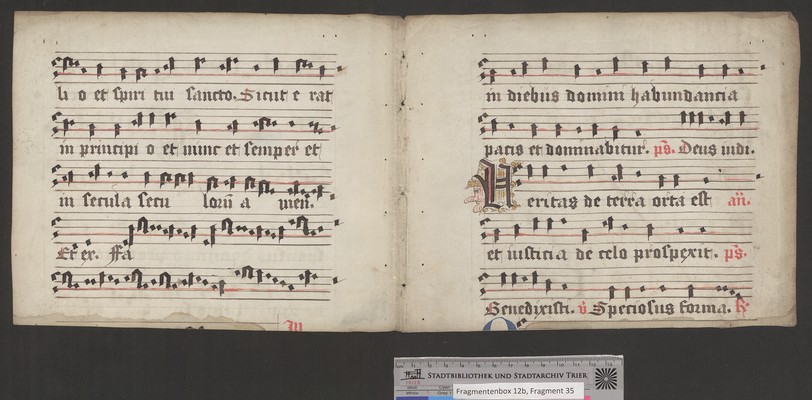 li o et spiri tui sancto. Sicut e rat
in principi o et nunc et semper et
in secula secu lorū a men.
Et ex. ffa
in diebus domini habundancia
pacis et dominabitur. ps. Deus iudi.
Veritas de terra orta est an.
et iusticia de celo prospexit. ps.
Benedixisti. v Speciosus forma. R
STADTBIBLIOTHEK UND STADTARCHIV TRIER
Fragmentenbox 12b, Fragment 35